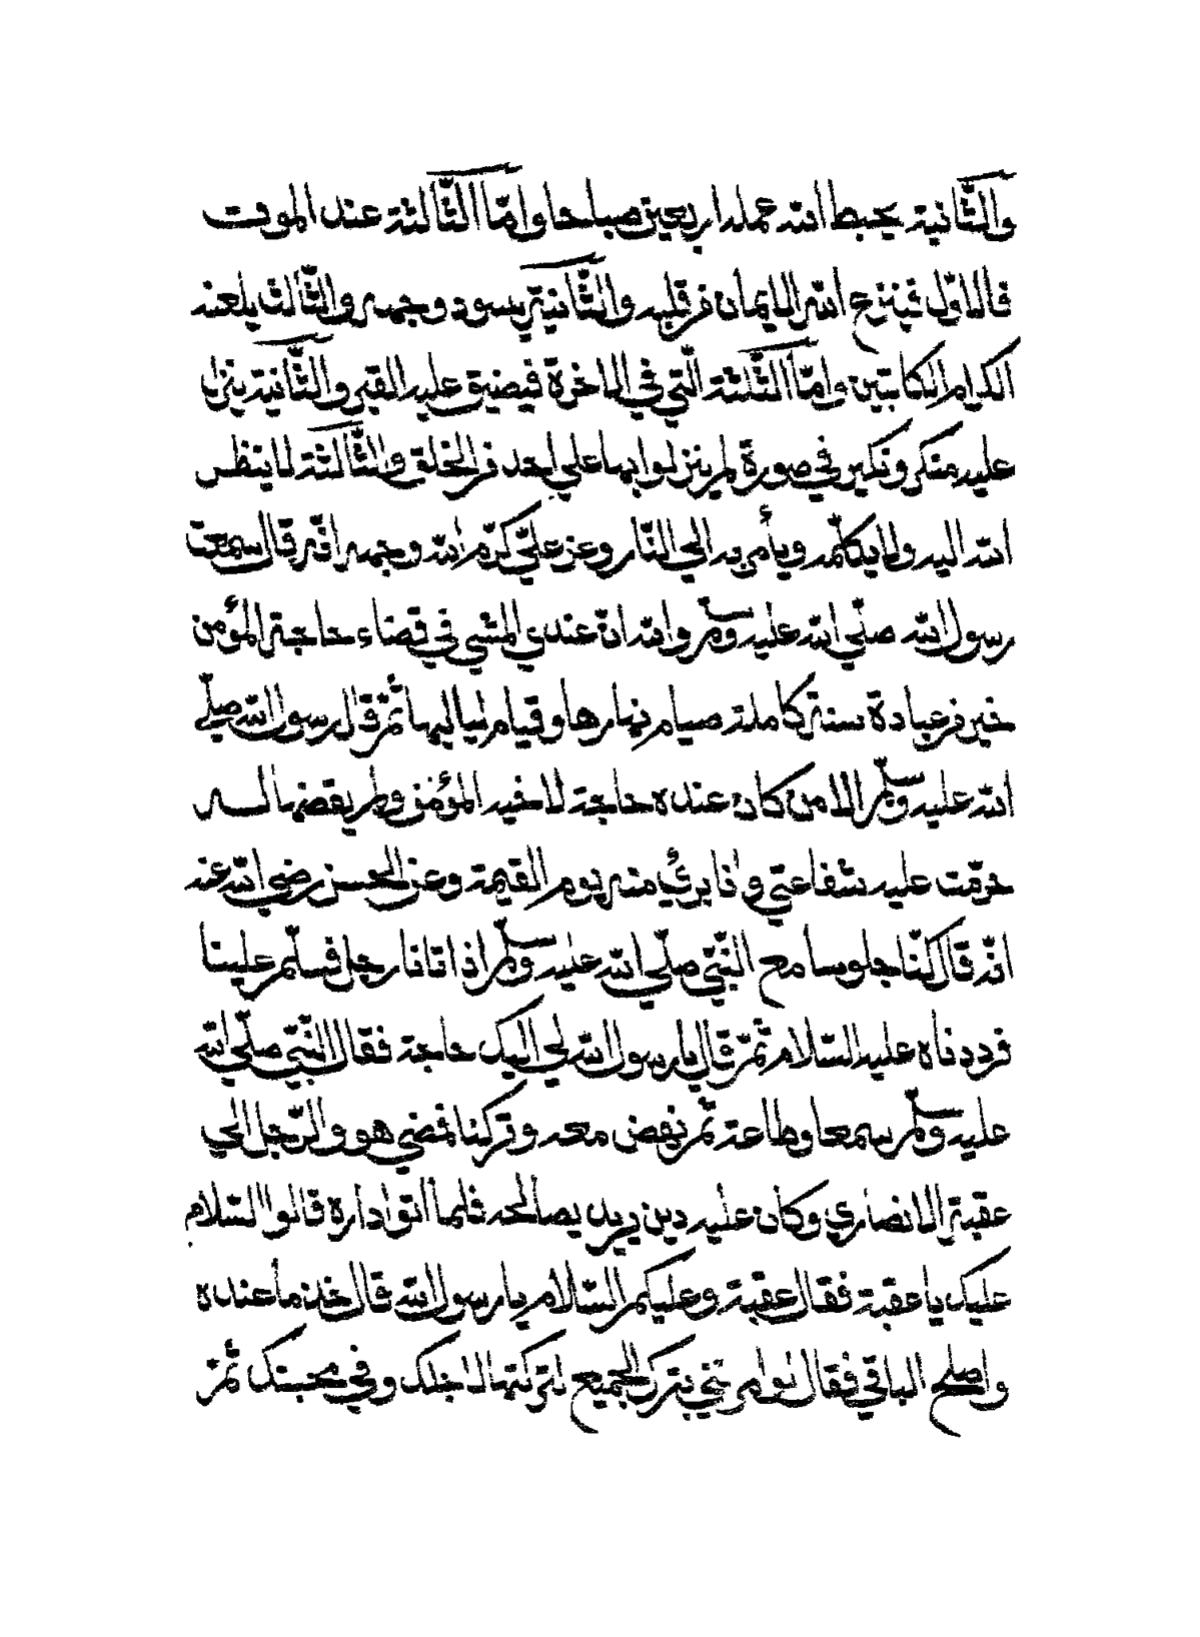 والثّانية يحبط الله عمله اربعين صباحا وامّا الثّالثة عند الموت
فالاوّل ينزع الله الايمان من قلبه والثّانية يسود وجهه والثّالث يلعنه
الكرام الكاتبين وامّا الثّلثة الّتي في الاخرة فيضيق عليه القبر والثّانية ينزل
عليه منكر ونكير في صورة لم ينزلوا بها علي احد من الخلق والثّالثة لا ينظر
الله اليه ولا يكلّمه ويأمر به الي النّار وعن عليّ كرّم الله وجهه انّه قال سمعت
رسول الله صلّي الله عليه وسلم والله ان عندي المشي في قضاء حاجة المؤمن
خير من عبادة سنة كاملة صيام نهارها وقيام لياليها ثمّ قال رسول الله صلّي
الله عليه وسلم الا من كان عنده حاجة لاخيه المؤمن ولم يقضها له
حرمّت عليه شفاعتي وانا برئ منه يوم القيمة وعن الحسن رضي الله عنه
انّه قال كنّا جلوسا مع النّبّي صلّي الله عليه وسلم اذ اتانا رجل فسلّم علينا
فرددناه عليه السّلام ثمّ قال يا رسول الله لي اليك حاجة فقال النّبّي صلّي الله
عليه وسلم سمعا وطاعة ثمّ نهض معه وتركنا فمضي هو والرّجل الي
عقبة الانصاري وكان عليه دين يريد يصالحه فلما اتوا داره قالوا السّلام
عليك يا عقبة فقال عقبة وعليكم السّلام يا رسول الله قال خذ ما عنده
واصلح الباقي فقال لو امرتني بترك الجميع لتركتها لاجلك وفي محبتك ثمّ